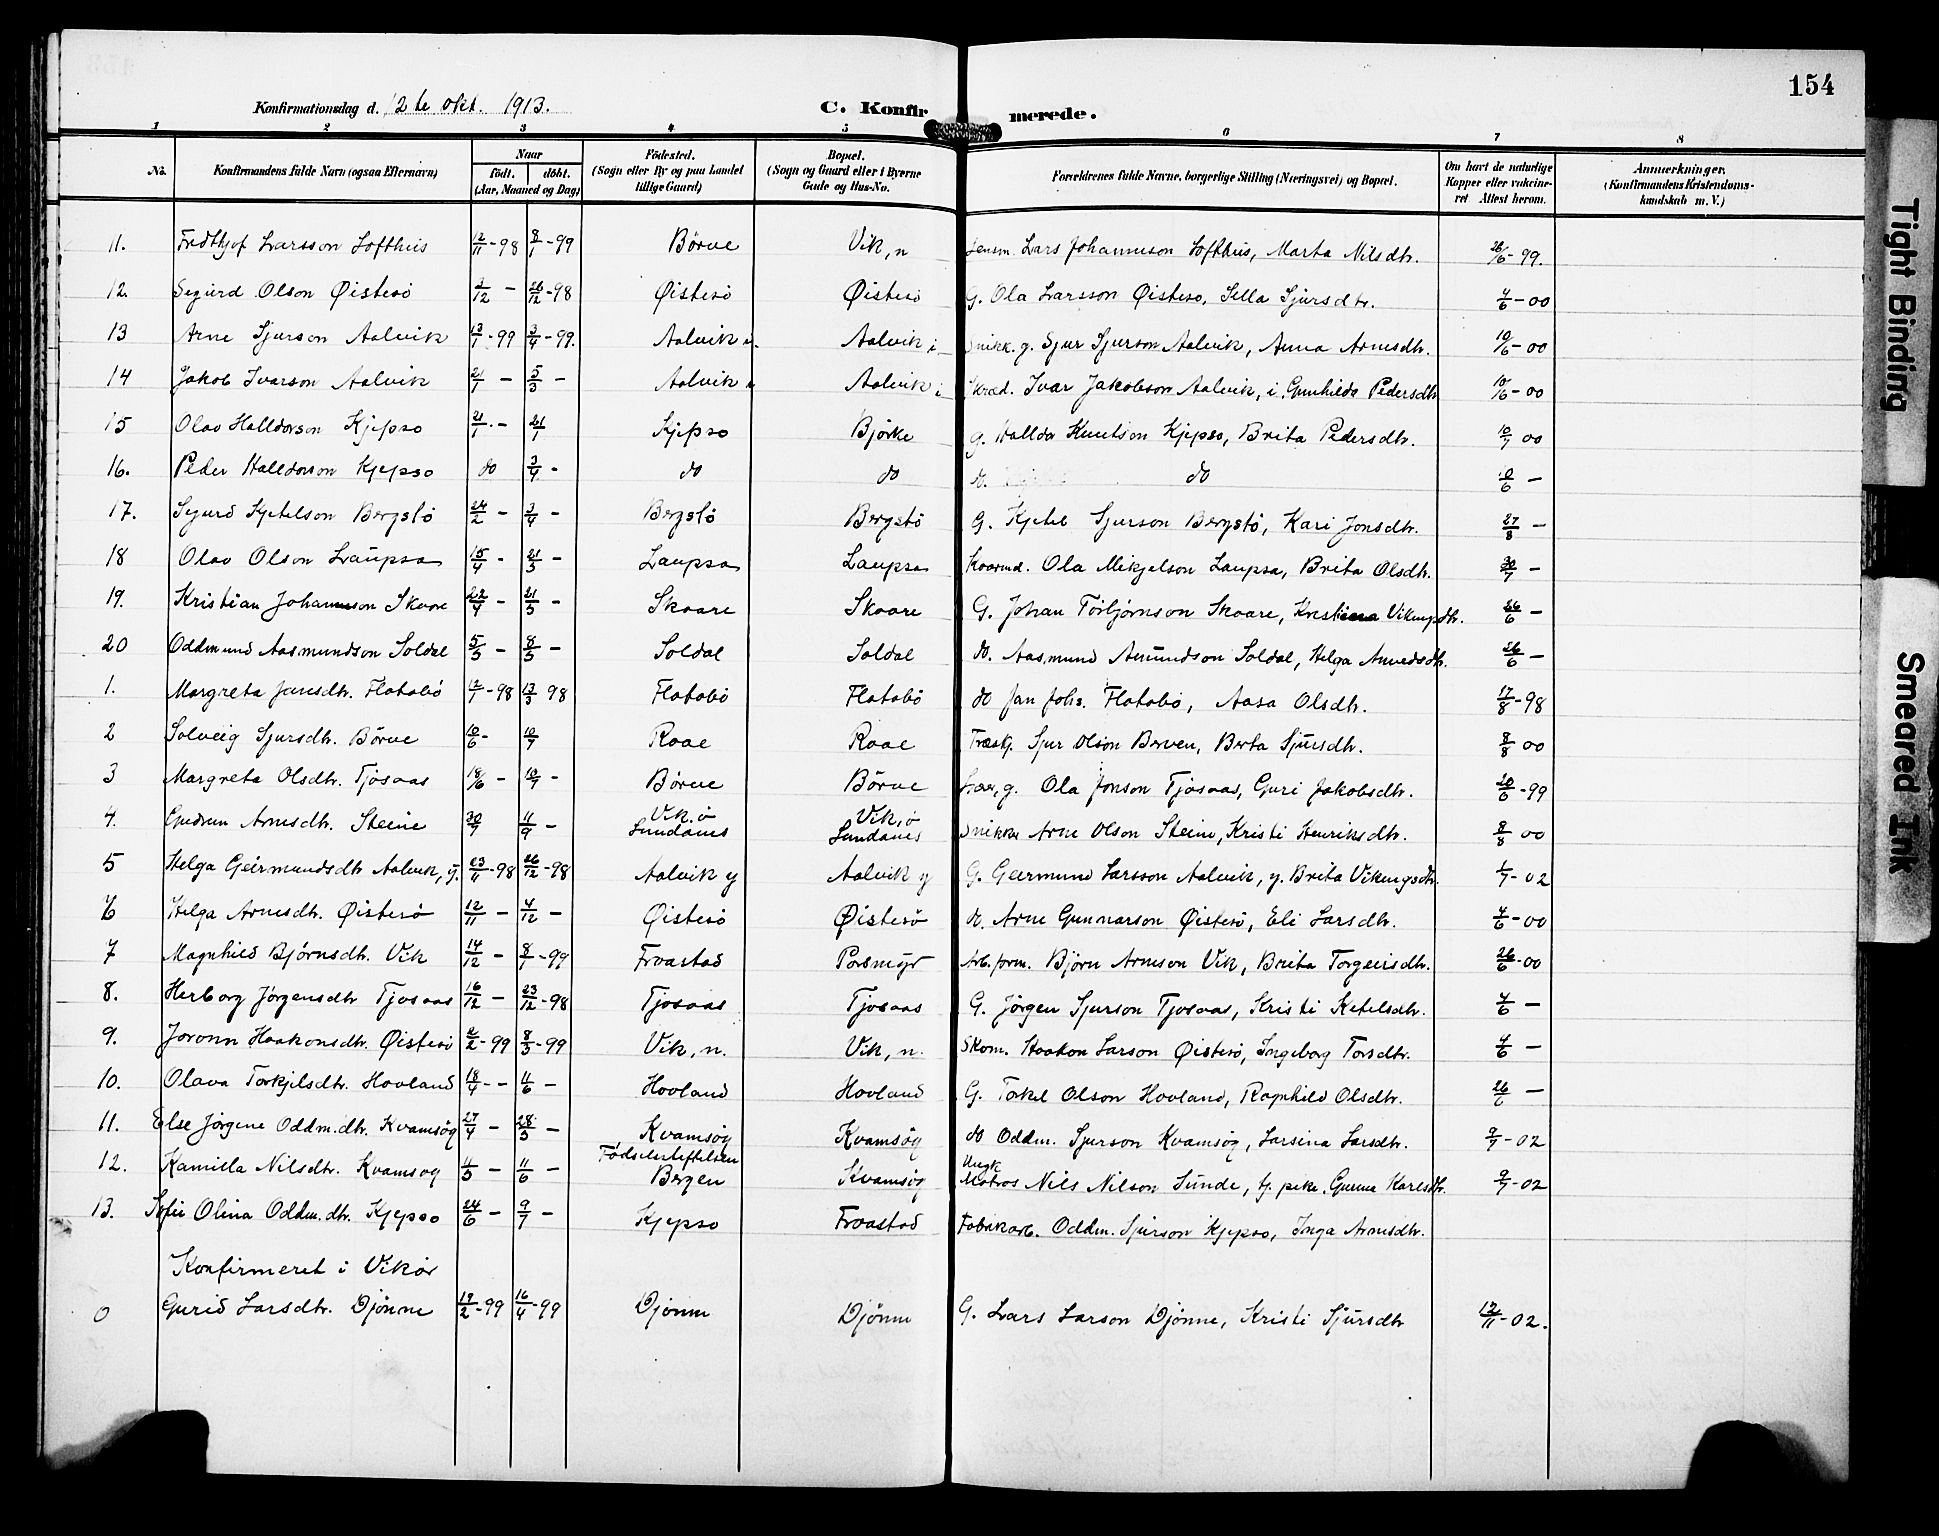 154
Konfirmationsdag d. 12te okt. 1913.
C. Konfirmerede.
1 2 3 4 5 6 7 8
No. Konfirmandens fulde Navn (ogsaa Efternavn) Naar födt. döbt. (Aar, Maaned og Dag) Födested. (Sogn eller By og paa Landet tillige Gaard) Bopæl. (Sogn og Gaard eller i Byerne Gade og Hus-No. Forældrenes fulde Navne, borgerlige Stilling (Næringsvei) og Bopæl. Om havt de naturlige Kopper eller vakcineret Attest herom. Anmærkninger. (Konfirmandens Kristendomskundskab m. V.)
11. Fridthjof Larsson Lofthus 12/11-98 8/1-99 Börve Vik, n Lensm. Lars Johannesson Lofthus, Marta Nilsdtr. 26/6-99.
12. Sigurd Olson Øistesö 2/12 - 26/12-98 Øistesö Øistesö G. Ola Larsson Øisteso, Sella Sjursdtr. 4/6-00
13 Arne Sjurson Aalvik 13/1-99 3/4-99. Aalvik i. Aalvik i Snikk. g. Sjur Sjurson Aalvik, Anna Arnesdtr. 10/6-00
14 Jakob Ivarson Aalvik 21/1 - 5/3 - Aalvik i Aalvik i Skræd. Ivar Jakobson Aalvik, i, Gunhilda Pedersdtr 10/6-00
15 Olav Halldorson Kjepso 21/1 - 21/1 Kjepso Björke G. Halldor Knutson Kjepso, Brita Pedersdtr. 10/7 00
16. Peder Halldorson Kjepso do 3/4 - do do do. do 10/6 -
17. Sjurd Kjetelson Bergstö 24/2 - 3/4 - Bergstö Bergstö G. Kjetel Sjurson Bergstö, Kari Jonsdtr. 27/8 -
18 Olav Olson Laupsa 15/4 - 21/5 - Laupsa Laupsa Ola Mikjelson Laupsa, Brita Olsdtr. 30/7 -
19. Kristian Johannesson Skaare 22/4 - 21/5 - Skaare Skaare G. Johan Torbjörnson Skaare, Kristina Vikingsdtr. 26/6 -
20 Oddmund Aasmundson Soldal 5/5 - 8/5 - Soldal Soldal do. Aasmund Amundson Soldal, Helga Anvedsdtr. 26/6 -
1. Margreta Jansdtr. Flatabö 12/1-98 13/3 98 Flatabö Flatabö do Jan Johs. Flatabö, Aasa Olsdtr. 17/8-98
2 Solveig Sjursdtr. Börve 10/6- 10/7 Roae Roae Træskj. Sjur Olson Berven, Berta Sjursdtr. 8/8 00
3 Margreta Olsdtr. Tjosaas 18/6 - 10/7 - Börve Börve g. Ola Jonson Tjosaas, Guri Jakobsdtr. 20/6-99
4. Gudrun Arnesdtr. Steine 30/7 11/9 - Vik. ö Sundanes Vik, ö Sundanes Snikker Arne Olson Steine, Kristi Henriksdtr. 8/8 00
5 Helga Geirmundsdtr Aalvik, y. 23/11-98 26/12-98 Aalvik y Aalvik y G. Geirmund Larsson Aalvik, y. Brita Vikingsdtr. 1/7-02
6 Helga Arnesdtr. Øistesö 12/11 - 4/12 - Øistesö Øistesö do. Arne Gunnarson Øistesö, Eli Larsdtr. 4/6-00
7 Magnhild Björnsdtr. Vik 14/12 - 8/1-99 Froastad Porsmyr Arb. form. Björn Arneson Vik, Brita Torgeirsdtr. 26/6-00
8. Herborg Jörgensdtr Tjosaas 16/12 - 23/12-98 Tjosaas Tjosaas G. Jörgen Sjurson Tjosaas, Kristi Ketelsdtr. 4/6 -
9. Joronn Haakonsdtr. Øistesö 2/2-99 8/3-99 Vik, n. Vik, n. Skom. Haakon Larson Øistesö, Ingeborg Torsdtr. 4/6 -
10. Olava Torkjelsdtr. Hovland 18/4 - 11/6 - Hovland Hovland G. Torkel Olson Hovland, Ragnhild Olsdtr. 26/6 -
11. Else Jörgine Oddm.dtr. Kvamsög 27/4 - 28/5 - Kvamsög Kvamsög do Oddm. Sjurson Kvamsög, Larsina Larsdtr. 9/7-02
12. Kamilla Nilsdtr. Kvamsog 11/5 - 11/6 - Fødselsstiftelsen Bergen Kvamsög Ungk. Matros Nils Nilson Sunde, tj. pike. Gunna Karlsdtr. 9/7-02
13. Sofie Olina Oddm.dtr. Kjepso 24/6 - 9/7 - Kjepso Froastad Fabrikarb. Oddm. Sjurson Kjepso, Inga Arnesdtr.
Konfirmeret i Vikör
0 Gurid Larsdtr. Djönne 19/2-99 16/4-99 Djönne Djönne G. Lars Larson Djönne, Kristi Sjursdtr 12/11-02.
Tight Binding
Smeared Ink